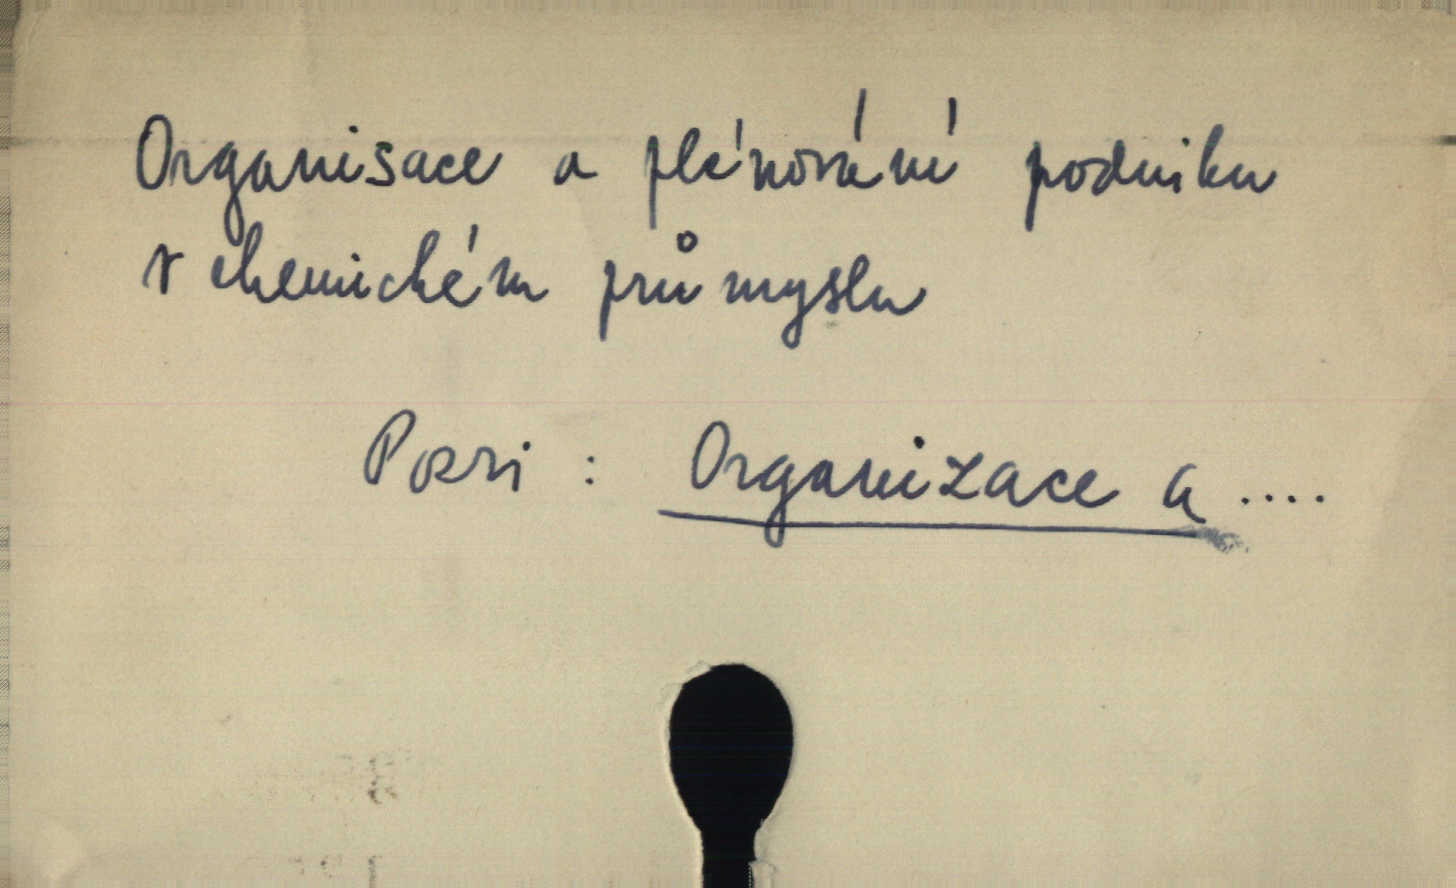 Organisace a plánování podniku
v chemickém průmyslu
Pozri : Organizace a ....